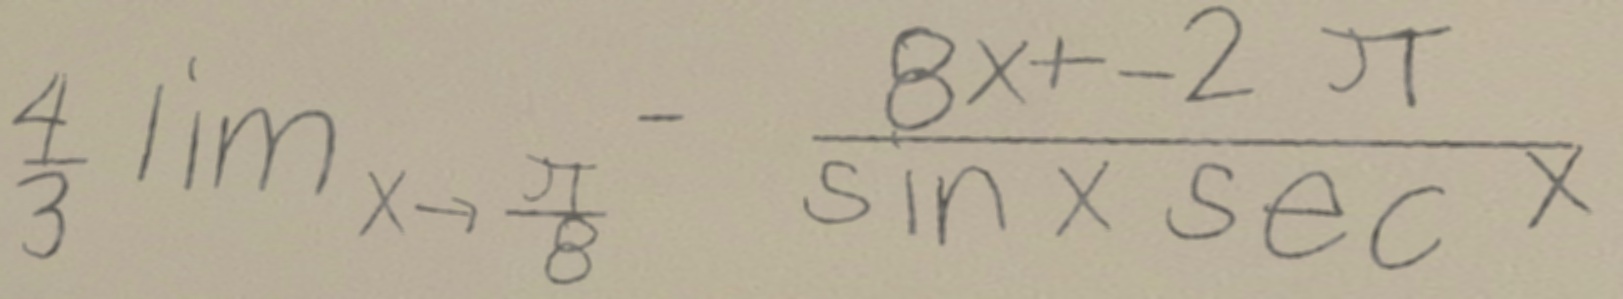 \frac{4}{3} \lim_{x \to \frac{\pi}{8}^-} \frac{8x+-2\pi}{\sin x \sec x}